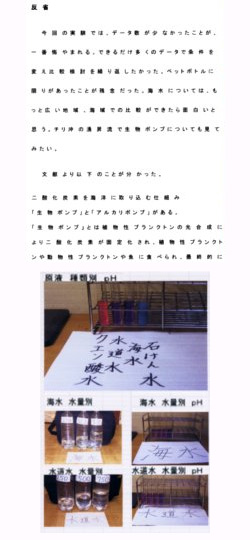 反省
今回の実験では、データ数が少なかったことが、
一番悔やまれる。できるだけ多くのデータで条件を
変え比較検討を繰り返したかった。ペットボトルに
限りがあったことが残念だった。海水については、も
っと広い地域、海域での比較ができたら面白いと
思う。チリ沖の湧昇流で生物ポンプについても見て
みたい。
文献より以下のことが分かった。
二酸化炭素を海洋に取り込む仕組み
「生物ポンプ」と「アルカリポンプ」がある。
「生物ポンプ」とは植物性プランクトンの光合成に
より二酸化炭素が固定化され、植物性プランクト
ンや動物性プランクトンや魚に食べられ、最終的に
原液 種類別 pH
クエン酸水
水道水
海水
石けん水
海水 水量別
海水 水量別 pH
海水
水道水 水量別
水道水 水量別 pH
水道水
水道水